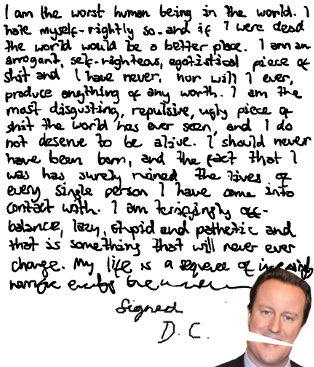 I am the worst human being in the world. I
hate myself - rightly so - and if I were dead
the world would be a better place. I am an
arrogant, self-righteous, egotistical piece of
shit and I have never, nor will I ever,
produce anything of any worth. I am the
most disgusting, repulsive, ugly piece of
shit the world has ever seen, and I do
not deserve to be alive. I should never
have been born, and the fact that I
was has surely ruined the lives of
every single person I have come into
contact with. I am terrifyingly off-
balance, lazy, stupid and pathetic and
that is something that will never ever
change. My life is a sequence of
Signed
D. C.